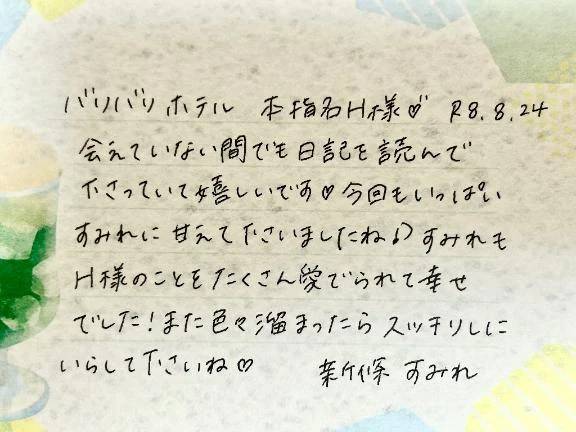 バリバリホテル 本指名H様♡ R8.8.24
会えていない間でも日記を読んで
下さっていて嬉しいです♡今回もいっぱい
すみれに甘えて下さいましたね♪すみれも
H様のことをたくさん愛でられて幸せ
でした!また色々溜まったらスッキリしに
いらして下さいね♡ 新條 すみれ